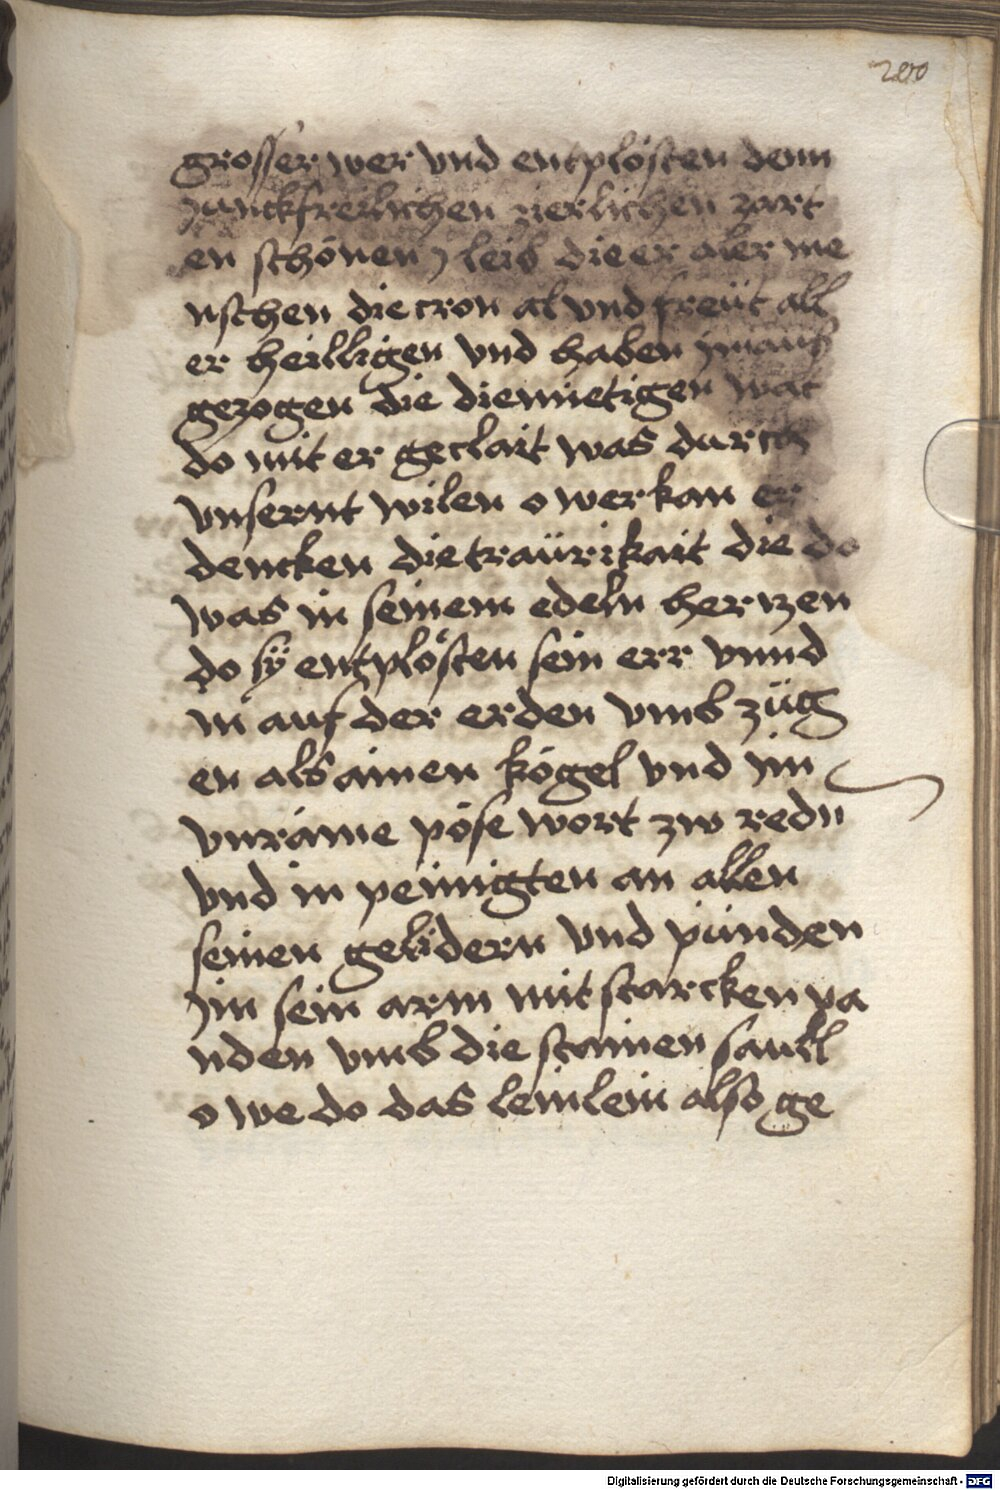 200
grosser wer vnd entplösten denn
junckfreilichen zierlichen zart
en schönen leib die er aler me
nschen die cron al vnd freüt all
er heilligen vnd haben im auß
gezogen die diemietigen wat
do mit er geclait was durch
vnsernt wilen o wer kan er
dencken die traürikait die do
was in seinem edeln hertzen
do sÿ entplösten sein err vnnd
in auf der erden vmb züg
en als ainen kögel vnd im
vnráme pöse wort zw redn
vnd in peinigten an allen
seinen gelidern vnd púnden
im sein arm mit starcken pa
nden vmb die stainen saull
o we do das lemlein also ge
Digitalisierung gefördert durch die Deutsche Forschungsgemeinschaft - DFG